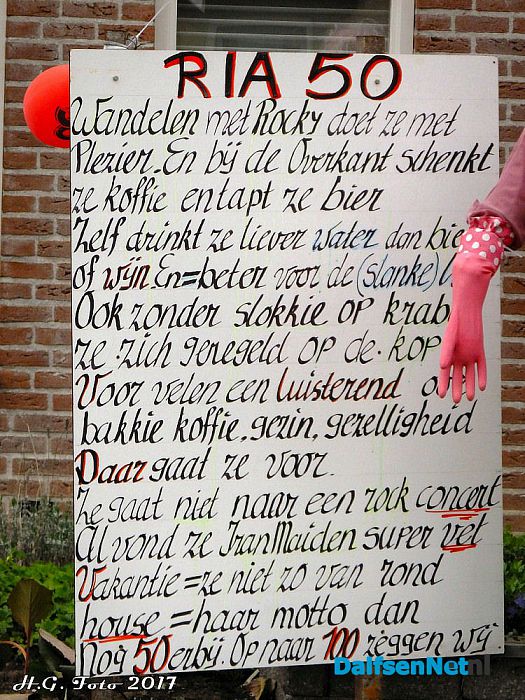 RIA 50
Wandelen met Rocky doet ze met
Plezier. En bij de Overkant schenkt
ze koffie en tapt ze bier
Zelf drinkt ze liever water dan bie
of wijn. En = beter voor de (slanke)
Ook zonder slokkie op krab
ze zich geregeld op de kop
Voor velen een luisterend
bakkie koffie, gezin, gezelligheid
Daar gaat ze voor.
Ze gaat niet naar een rock concert
Al vond ze IranMaiden super vet
Vakantie = ze niet zo van rond
house = haar motto dan
Nog 50 erbij. Op naar 100 zeggen wij
DalfsenNet.nl
H.G. Foto 2017